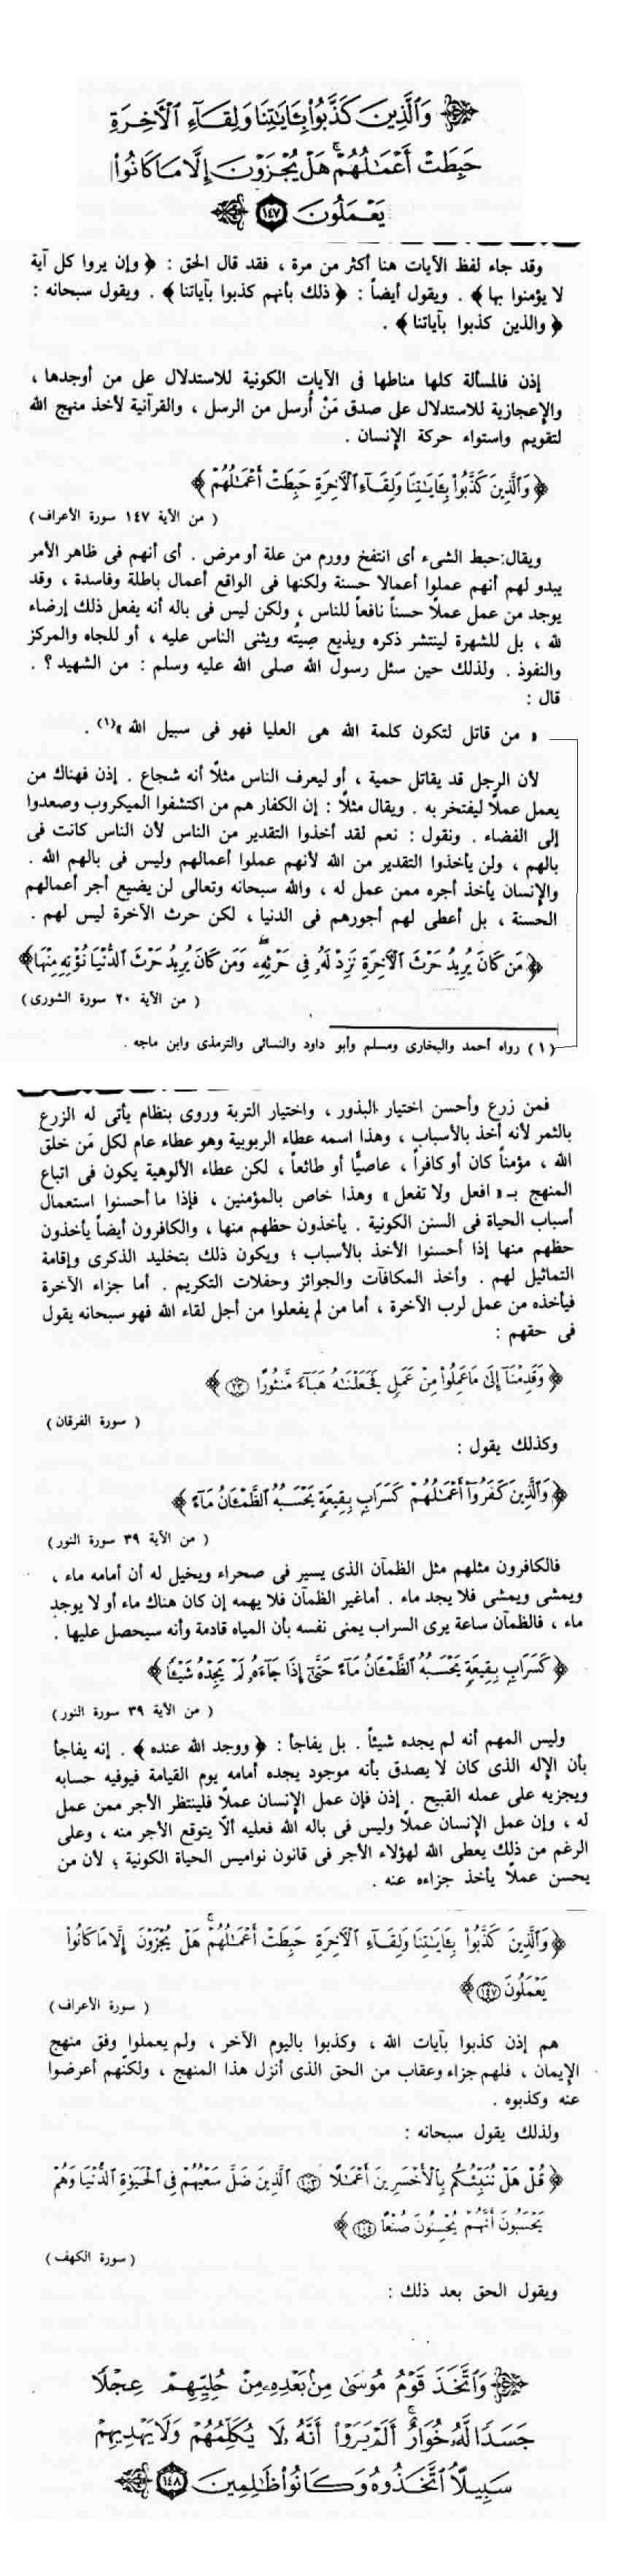 وَٱلَّذِينَ كَذَّبُوا۟ بِـَٔايَـٰتِنَا وَلِقَآءِ ٱلْـَٔاخِرَةِ
حَبِطَتْ أَعْمَـٰلُهُمْ ۚ هَلْ يُجْزَوْنَ إِلَّا مَا كَانُوا۟
يَعْمَلُونَ ١٤٧
وقد جاء لفظ الآيات هنا أكثر من مرة ، فقد قال الحق : ﴿ وإن يروا كل آية
لا يؤمنوا بها ﴾ . ويقول أيضاً : ﴿ ذلك بأنهم كذبوا بآياتنا ﴾ . ويقول سبحانه :
﴿ والذين كذبوا بآياتنا ﴾ .
إذن فالمسألة كلها مناطها فى الآيات الكونية للاستدلال على من أوجدها ،
والإعجازية للاستدلال على صدق مَنْ أُرسل من الرسل ، والقرآنية لأخذ منهج الله
لتقويم واستواء حركة الإنسان .
﴿ وَٱلَّذِينَ كَذَّبُوا۟ بِـَٔايَـٰتِنَا وَلِقَآءِ ٱلْـَٔاخِرَةِ حَبِطَتْ أَعْمَـٰلُهُمْ ﴾
( من الآية ١٤٧ سورة الأعراف )
ويقال:حبط الشىء أى انتفخ وورم من علة أو مرض . أى أنهم فى ظاهر الأمر
يبدو لهم أنهم عملوا أعمالا حسنة ولكنها فى الواقع أعمال باطلة وفاسدة ، وقد
يوجد من عمل عملاً حسناً نافعاً للناس ، ولكن ليس فى باله أنه يفعل ذلك إرضاء
لله ، بل للشهرة لينتشر ذكره ويذيع صِيتُه ويثنى الناس عليه ، أو للجاه والمركز
والنفوذ . ولذلك حين سئل رسول الله صلى الله عليه وسلم : من الشهيد ؟ .
قال :
« من قاتل لتكون كلمة الله هى العليا فهو فى سبيل الله »(١) .
لأن الرجل قد يقاتل حمية ، أو ليعرف الناس مثلاً أنه شجاع . إذن فهناك من
يعمل عملاً ليفتخر به . ويقال مثلاً : إن الكفار هم من اكتشفوا الميكروب وصعدوا
إلى الفضاء . ونقول : نعم لقد أخذوا التقدير من الناس لأن الناس كانت فى
بالهم ، ولن يأخذوا التقدير من الله لأنهم عملوا أعمالهم وليس فى بالهم الله .
والإنسان يأخذ أجره ممن عمل له ، والله سبحانه وتعالى لن يضيع أجر أعمالهم
الحسنة ، بل أعطى لهم أجورهم فى الدنيا ، لكن حرث الآخرة ليس لهم .
﴿ مَن كَانَ يُرِيدُ حَرْثَ ٱلْـَٔاخِرَةِ نَزِدْ لَهُۥ فِى حَرْثِهِۦ ۖ وَمَن كَانَ يُرِيدُ حَرْثَ ٱلدُّنْيَا نُؤْتِهِۦ مِنْهَا ﴾
( من الآية ٢٠ سورة الشورى )
( ١ ) رواه أحمد والبخارى ومسلم وأبو داود والنسائى والترمذى وابن ماجه .
فمن زرع وأحسن اختيار البذور ، واختيار التربة وروى بنظام يأتى له الزرع
بالثمر لأنه أخذ بالأسباب ، وهذا اسمه عطاء الربوبية وهو عطاء عام لكل مَن خلق
الله ، مؤمناً كان أو كافراً ، عاصيًّا أو طائعاً ، لكن عطاء الألوهية يكون فى اتباع
المنهج بـ « افعل ولا تفعل » وهذا خاص بالمؤمنين ، فإذا ما أحسنوا استعمال
أسباب الحياة فى السنن الكونية . يأخذون حظهم منها ، والكافرون أيضاً يأخذون
حظهم منها إذا أحسنوا الأخذ بالأسباب ؛ ويكون ذلك بتخليد الذكرى وإقامة
التماثيل لهم . وأخذ المكافآت والجوائز وحفلات التكريم . أما جزاء الآخرة
فيأخذه من عمل لرب الآخرة ، أما من لم يفعلوا من أجل لقاء الله فهو سبحانه يقول
فى حقهم :
﴿ وَقَدِمْنَآ إِلَىٰ مَا عَمِلُوا۟ مِنْ عَمَلٍ فَجَعَلْنَـٰهُ هَبَآءً مَّنثُورًا ٢٣ ﴾
( سورة الفرقان )
وكذلك يقول :
﴿ وَٱلَّذِينَ كَفَرُوٓا۟ أَعْمَـٰلُهُمْ كَسَرَابٍۭ بِقِيعَةٍ يَحْسَبُهُ ٱلظَّمْـَٔانُ مَآءً ﴾
( من الآية ٣٩ سورة النور )
فالكافرون مثلهم مثل الظمآن الذى يسير فى صحراء ويخيل له أن أمامه ماء ،
ويمشى ويمشى فلا يجد ماء . أماغير الظمآن فلا يهمه إن كان هناك ماء أو لا يوجد
ماء ، فالظمآن ساعة يرى السراب يمنى نفسه بأن المياه قادمة وأنه سيحصل عليها .
﴿ كَسَرَابٍۭ بِقِيعَةٍ يَحْسَبُهُ ٱلظَّمْـَٔانُ مَآءً حَتَّىٰٓ إِذَا جَآءَهُۥ لَمْ يَجِدْهُ شَيْـًٔا ﴾
( من الآية ٣٩ سورة النور )
وليس المهم أنه لم يجده شيئاً . بل يفاجأ : ﴿ ووجد الله عنده ﴾ . إنه يفاجأ
بأن الإله الذى كان لا يصدق بأنه موجود يجده أمامه يوم القيامة فيوفيه حسابه
ويجزيه على عمله القبيح . إذن فإن عمل الإنسان عملاً فلينتظر الأجر ممن عمل
له ، وإن عمل الإنسان عملاً وليس فى باله الله فعليه ألاّ يتوقع الأجر منه ، وعلى
الرغم من ذلك يعطى الله لهؤلاء الأجر فى قانون نواميس الحياة الكونية ؛ لأن من
يحسن عملاً يأخذ جزاءه عنه .
﴿ وَٱلَّذِينَ كَذَّبُوا۟ بِـَٔايَـٰتِنَا وَلِقَآءِ ٱلْـَٔاخِرَةِ حَبِطَتْ أَعْمَـٰلُهُمْ ۚ هَلْ يُجْزَوْنَ إِلَّا مَا كَانُوا۟
يَعْمَلُونَ ١٤٧ ﴾
( سورة الأعراف )
هم إذن كذبوا بآيات الله ، وكذبوا باليوم الآخر ، ولم يعملوا وفق منهج
الإيمان ، فلهم جزاء وعقاب من الحق الذى أنزل هذا المنهج ، ولكنّهم أعرضوا
عنه وكذبوه .
ولذلك يقول سبحانه :
﴿ قُلْ هَلْ نُنَبِّئُكُم بِٱلْأَخْسَرِينَ أَعْمَـٰلًا ١٠٣ ٱلَّذِينَ ضَلَّ سَعْيُهُمْ فِى ٱلْحَيَوٰةِ ٱلدُّنْيَا وَهُمْ
يَحْسَبُونَ أَنَّهُمْ يُحْسِنُونَ صُنْعًا ١٠٤ ﴾
( سورة الكهف )
ويقول الحق بعد ذلك :
وَٱتَّخَذَ قَوْمُ مُوسَىٰ مِنۢ بَعْدِهِۦ مِنْ حُلِيِّهِمْ عِجْلًا
جَسَدًا لَّهُۥ خُوَارٌ ۚ أَلَمْ يَرَوْا۟ أَنَّهُۥ لَا يُكَلِّمُهُمْ وَلَا يَهْدِيهِمْ
سَبِيلًا ۘ ٱتَّخَذُوهُ وَكَانُوا۟ ظَـٰلِمِينَ ١٤٨